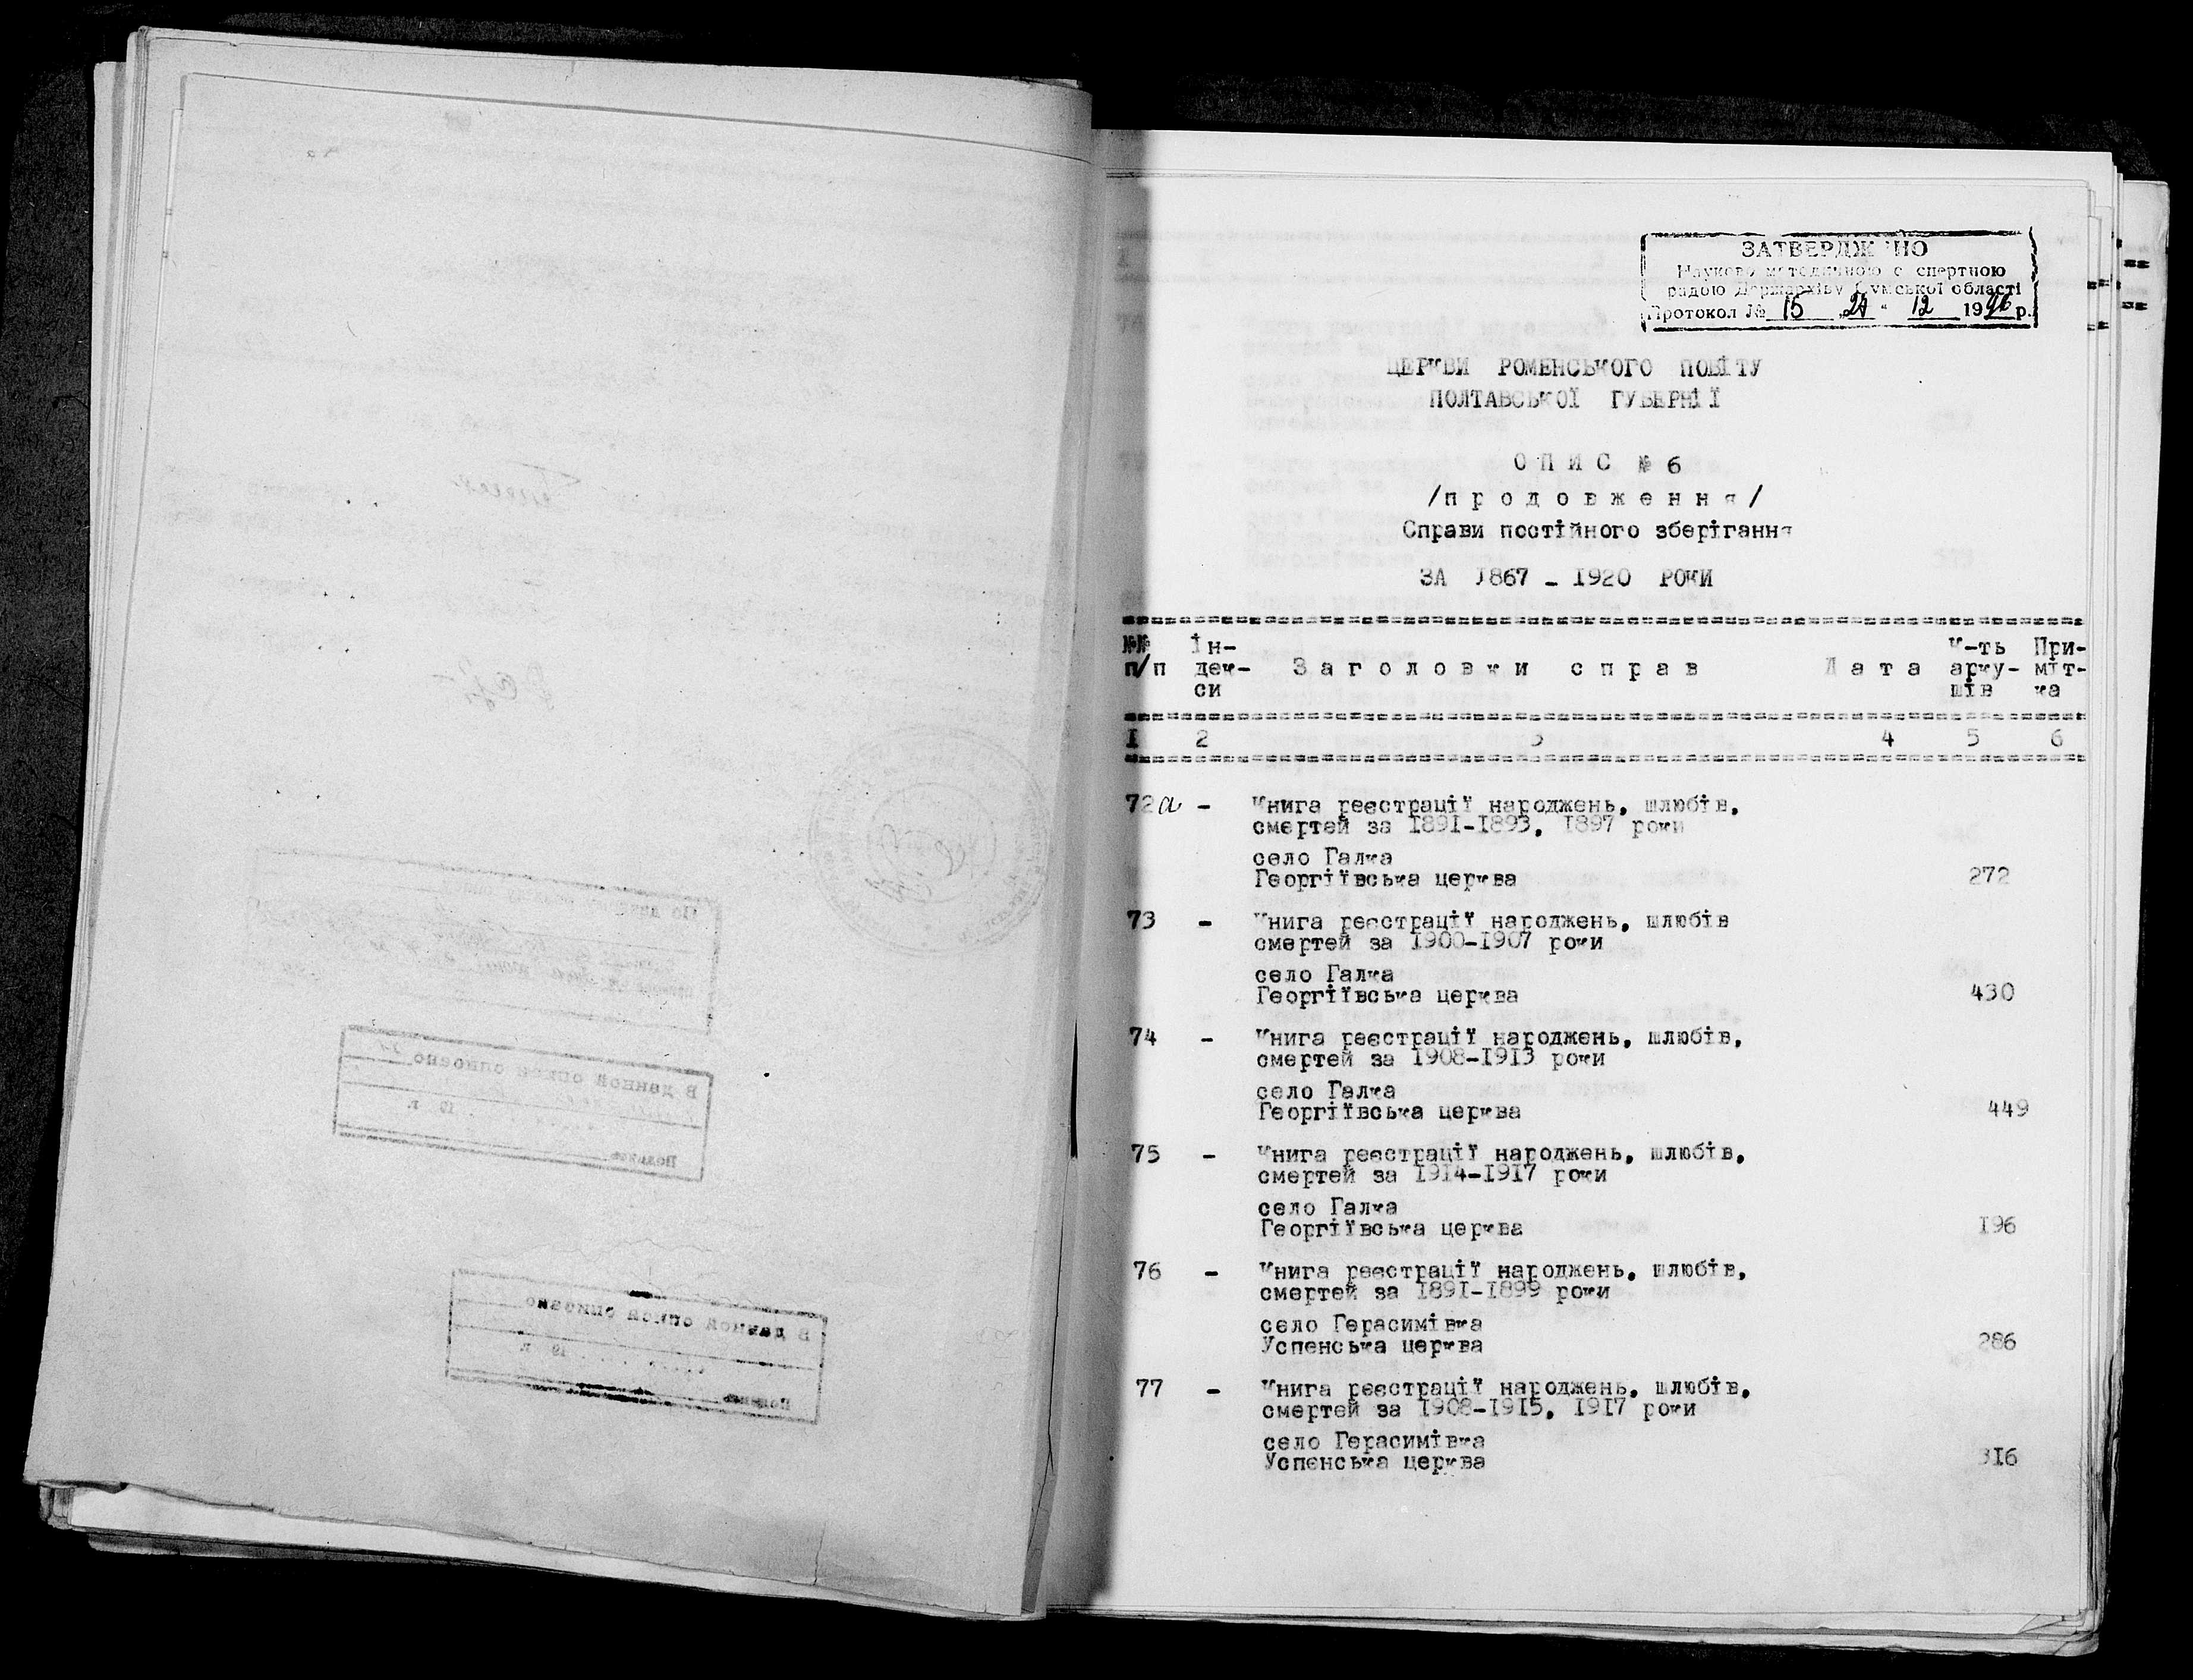 ЗАТВЕРДЖ НО
Науково методичною е спертною
радою Держархіву Сумської області
Протокол № 15 12 1996 р.
ЦЕРКВИ РОМЕНСЬКОГО ПОВІТУ
ПОЛТАВСЬКОЇ ГУБЕРНІЇ
О П И С № 6
/п р о д о в ж е н н я/
Справи постійного зберігання
ЗА 1867 - 1920 РОКИ
№№ Ін- К-ть При-
п/п дек- З а г о л о в к и с п р а в Д а т а арку- міт-
си шів ка
І 2 3 4 5 6
72а - Книга реєстрації народжень, шлюбів,
смертей за 1891-1893, 1897 роки
село Галка
Георгіївська церква 272
73 - Книга реєстрації народжень, шлюбів
смертей за 1900-1907 роки
село Галка
Георгіївська церква 430
74 - Книга реєстрації народжень, шлюбів,
смертей за 1908-1913 роки
село Галка
Георгіївська церква 449
75 - Книга реєстрації народжень, шлюбів,
смертей за 1914-1917 роки
село Галка
Георгіївська церква 196
76 - Книга реєстрації народжень, шлюбів,
смертей за 1891-1899 роки
село Герасимівка
Успенська церква 286
77 - Книга реєстрації народжень, шлюбів,
смертей за 1908-1915, 1917 роки
село Герасимівка
Успенська церква 316